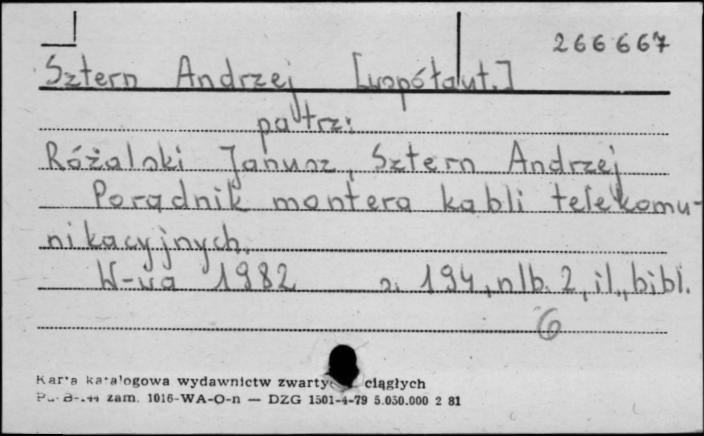 266667
Sztern Andrzej [współaut.]
patrz:
Różalski Janusz, Sztern Andrzej
Poradnik montera kabli telekomu-
nikacyjnych.
W-wa 1982 s. 194, nlb. 2, il., bibl.
6
Karta katalogowa wydawnictw zwarty ciągłych
zam. 1016-WA-O-n — DZG 1501-4-79 5.050.000 2 81